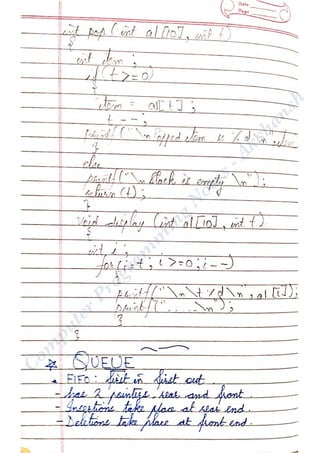 Date
Page
int pop (int a1[10], int t)
{
int item ;
if (t >= 0)
{
item = a1[t] ;
t - - ;
printf ("\n Popped item is %d \n", item
}
else
printf ("\n Stack is empty \n") ;
return (t) ;
}
void display (int a1[10], int t)
{
int i ;
for (i=t ; i >= 0 ; i - -)
{
printf ("\n \t %d \n", a1[i]);
printf ("......\n") ;
}
}
QUEUE
FIFO : first in first out
- has 2 pointers, rear and front.
- Insertions take place at rear end.
- Deletions take place at front end.
Computer Programming Notes - Akshansh